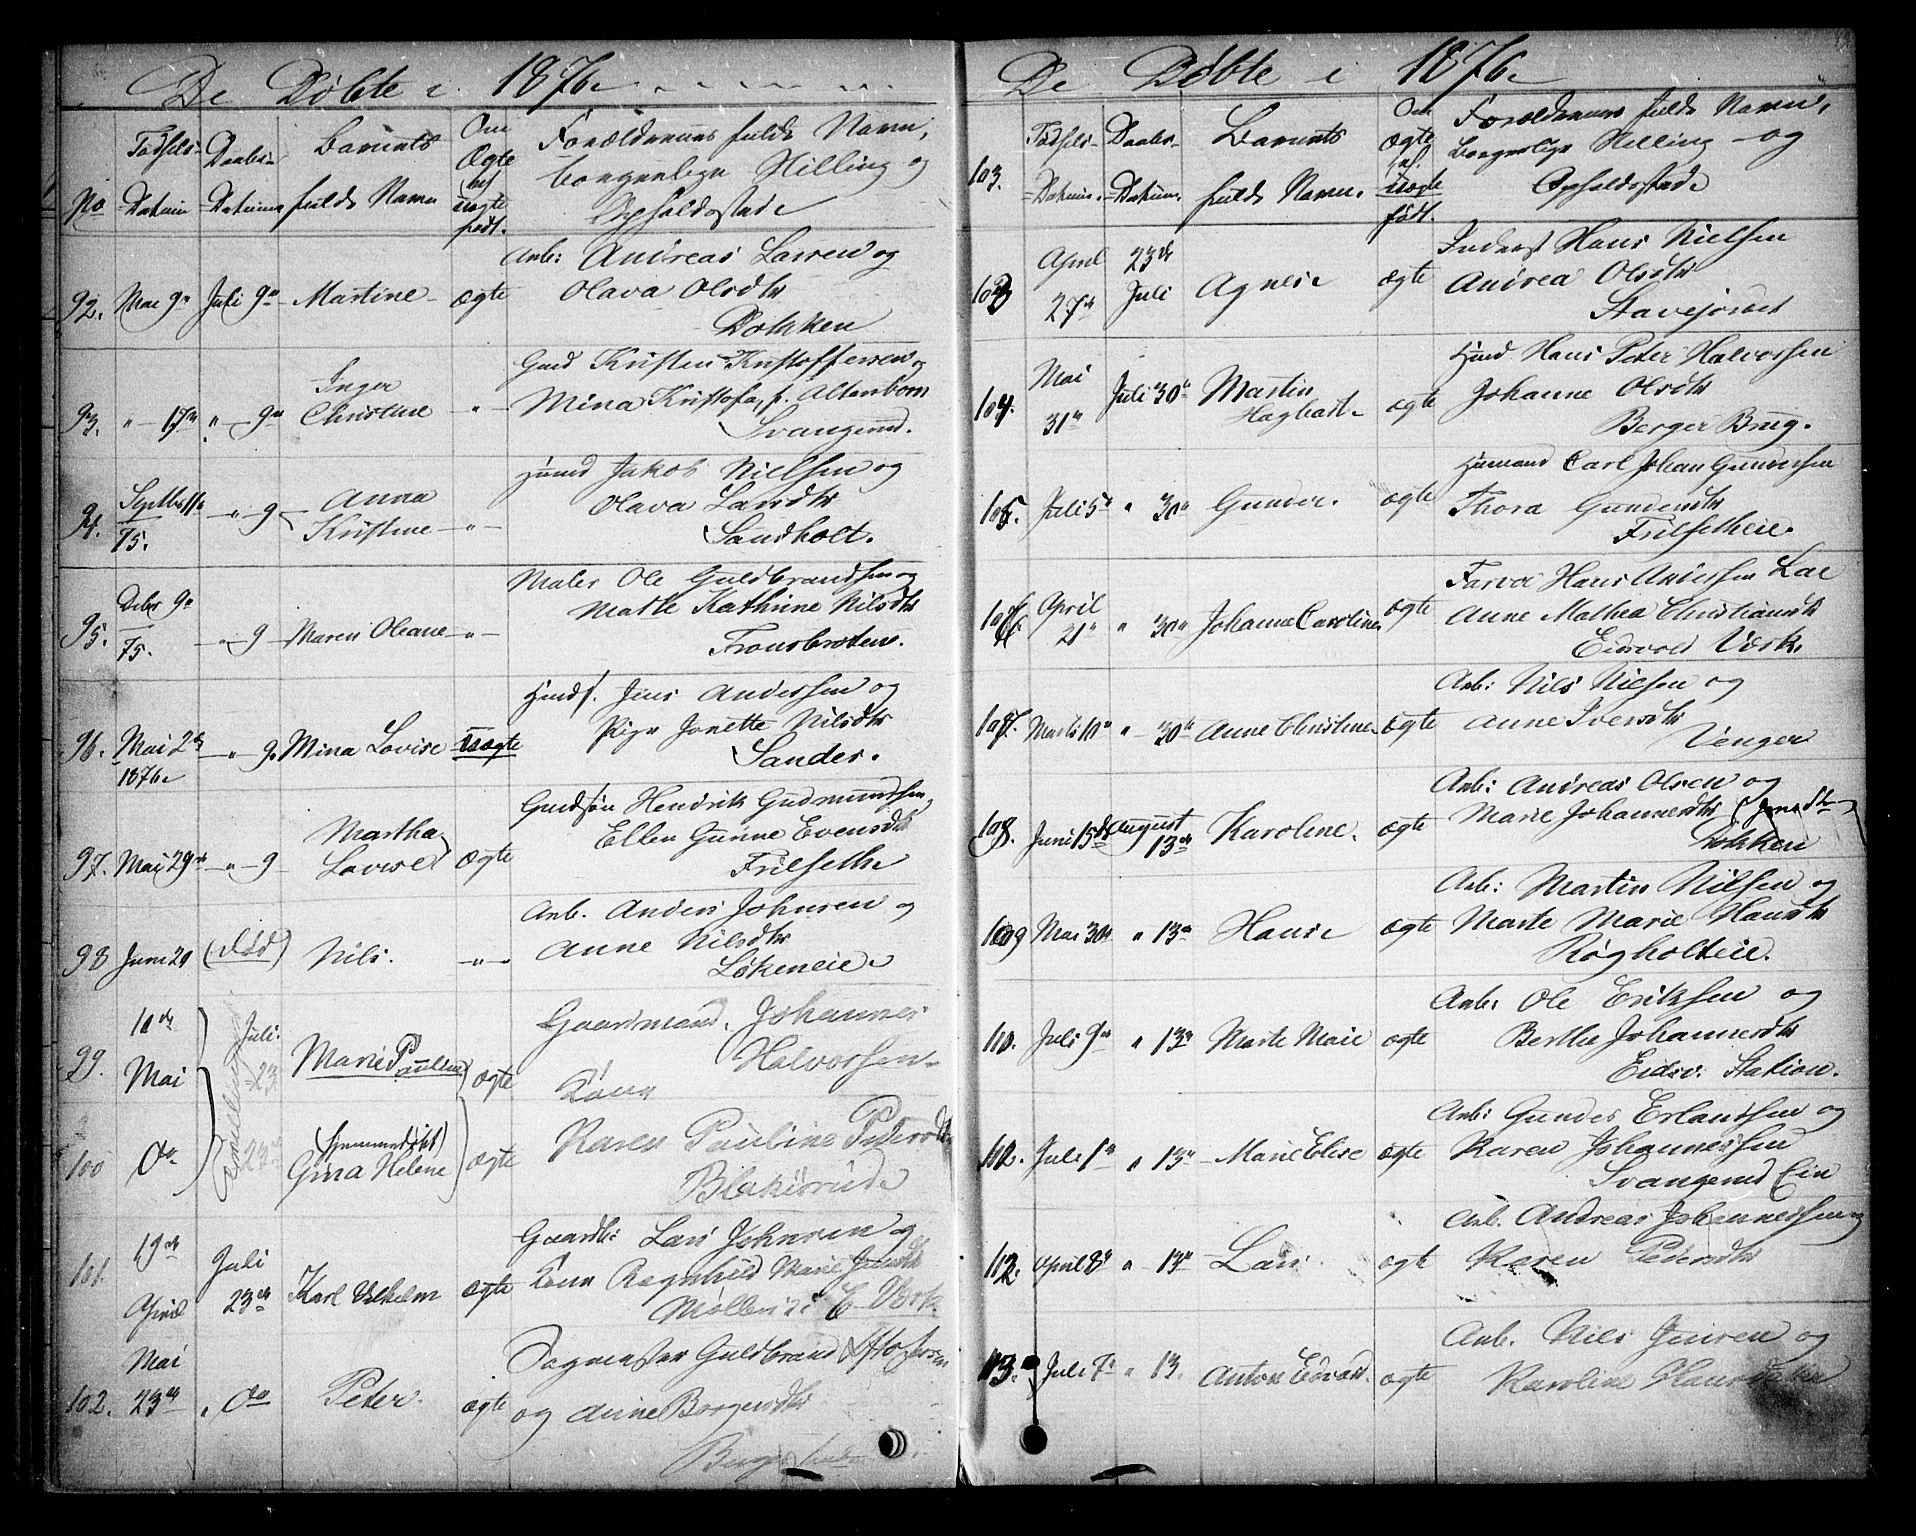 De Døbte i 1876.
No
Fødsels-
Datum
Daabs-
Datum
Barnets
fulde Navn
Om
Ægte
el.
uægte
født.
Forældrenes fulde Navn,
borgerlige Stilling og
Opholdsstæde
92. Mai 9de Juli 9de Martine ægte
Arb: Andreas Larsen og
Olava Olsdtr
Dokken
93. " 17de " 9de Inger
Christine "
Gmd Kristen Kristoffersen og
Mina Kristofa, f. Altenborn
Svangerud.
94. Septbr 11te
75. " 9 Anna
Kristine "
Hmd Jakob Nielsen og
Olava Larsdtr
Sandholt.
95. Debr 9de
75. " 9 Maren Oleane "
Maler Ole Guldbrandsen og
Marthe Kathrine Nilsdtr
96. Mai 2de
1876 " 9. Mina Lovise uægte
Jens Andersen og
Pige Jonette Nilsdtr
Sander.
97. Mai 29de " 9 Martha
Lovise ægte
Gmdsøn Hendrik Gudmundsen,
Ellen Gurine Evensdtr
Frilseth
98 Juni 29 (død) Nils. "
Arb. Anders Johnsen og
Anne Nilsdtr
Løkeneie
99. 10de
Mai Juli
23 Marie Pauline ægte
Gaardmand, Johannes
Halvorsen
Kone
100 do 23de (hjemmedøbt)
Gina Helene ægte
Karen Pauline Pedersdtr
Blakisrud
101. 19de
April Juli
23de Karl Vilhelm ægte
Gaardbr: Lars Johnsen og
Kone Ragnhild Marie
E. Værk
102. Mai
23de " do Peter. ægte
Guldbrand
og Anne Borgersdtr
De Døbte i 1876
103.
Fødsels-
Datum.
Daabs-
Datum.
Barnets
fulde Navn.
Om
ægte
el.
uægte
født.
Forældrenes fulde Navn,
borgerlige Stilling og
Opholdsstæde
103 April
27de 23de
Juli Agnese ægte
Inderst Hans Nielsen
Andrea Olsdtr
Stavejordet
104. Mai
31te Juli 30te Martin
Hagbart ægte
Hmd Hans Peter Halvorsen
Johanne Olsdtr
Berger Brug.
105. Juli 5te " 30te Gunder. ægte
Husmand Carl Johan Gundersen
Thora Gundersdtr
Frilsetheie.
106 April
21de " 30te Johanne Caroline ægte
Farver Hans Andersen Lae
Anne Mathea Christiansdtr
Eidsvold Værk.
107. Marts 10de " 30te Anne Christine ægte
Arb: Nils Nielsen og
Anne Iversdtr
Venger
108. Juni 15de August
13de Karoline. ægte
Arb: Andreas Olsen og
Marie Johannesdtr (Jensdtr)
Dokken
109 Mai 30te " 13de Hanse ægte
Arb: Martin Nilsen og
Marte Marie Hansdtr
Røgholteie.
110. Juli 9de " 13de Marte Marie ægte
Arb: Ole Eriksen og
Berthe Johannesdtr
Eidsv. Station.
111. Juli 1ste " 13de Marie Elise ægte
Arb: Gunder Erlandsen og
Karen Johannessen
Svangerud Eie
112. April 8de " 13de Lars. ægte
Arb. Andreas Johannessen og
Karen Pedersdtr
113. Juli 7de " 13. Anton Edvard. ægte
Arb. Nils Jensen og
Karoline Hansdtr